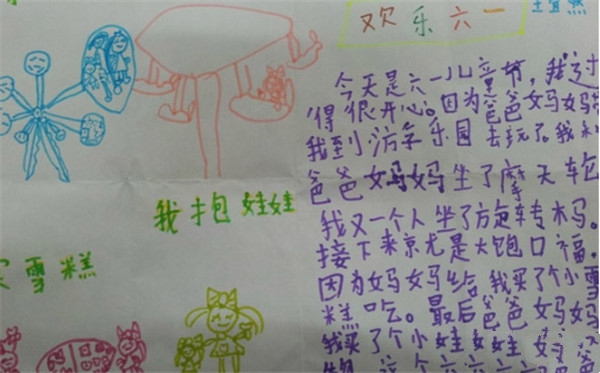 欢乐六一
今天是六一儿童节，我过
得很开心。因为爸爸妈妈
我到游乐园去玩了。我和
爸爸妈妈坐了摩天轮
我又一个人坐了旋转木马。
接下来就是大饱口福。
因为妈妈给我买了个小雪
糕吃。最后爸爸妈妈
我买了个小娃娃
这个六
我抱娃娃
雪糕